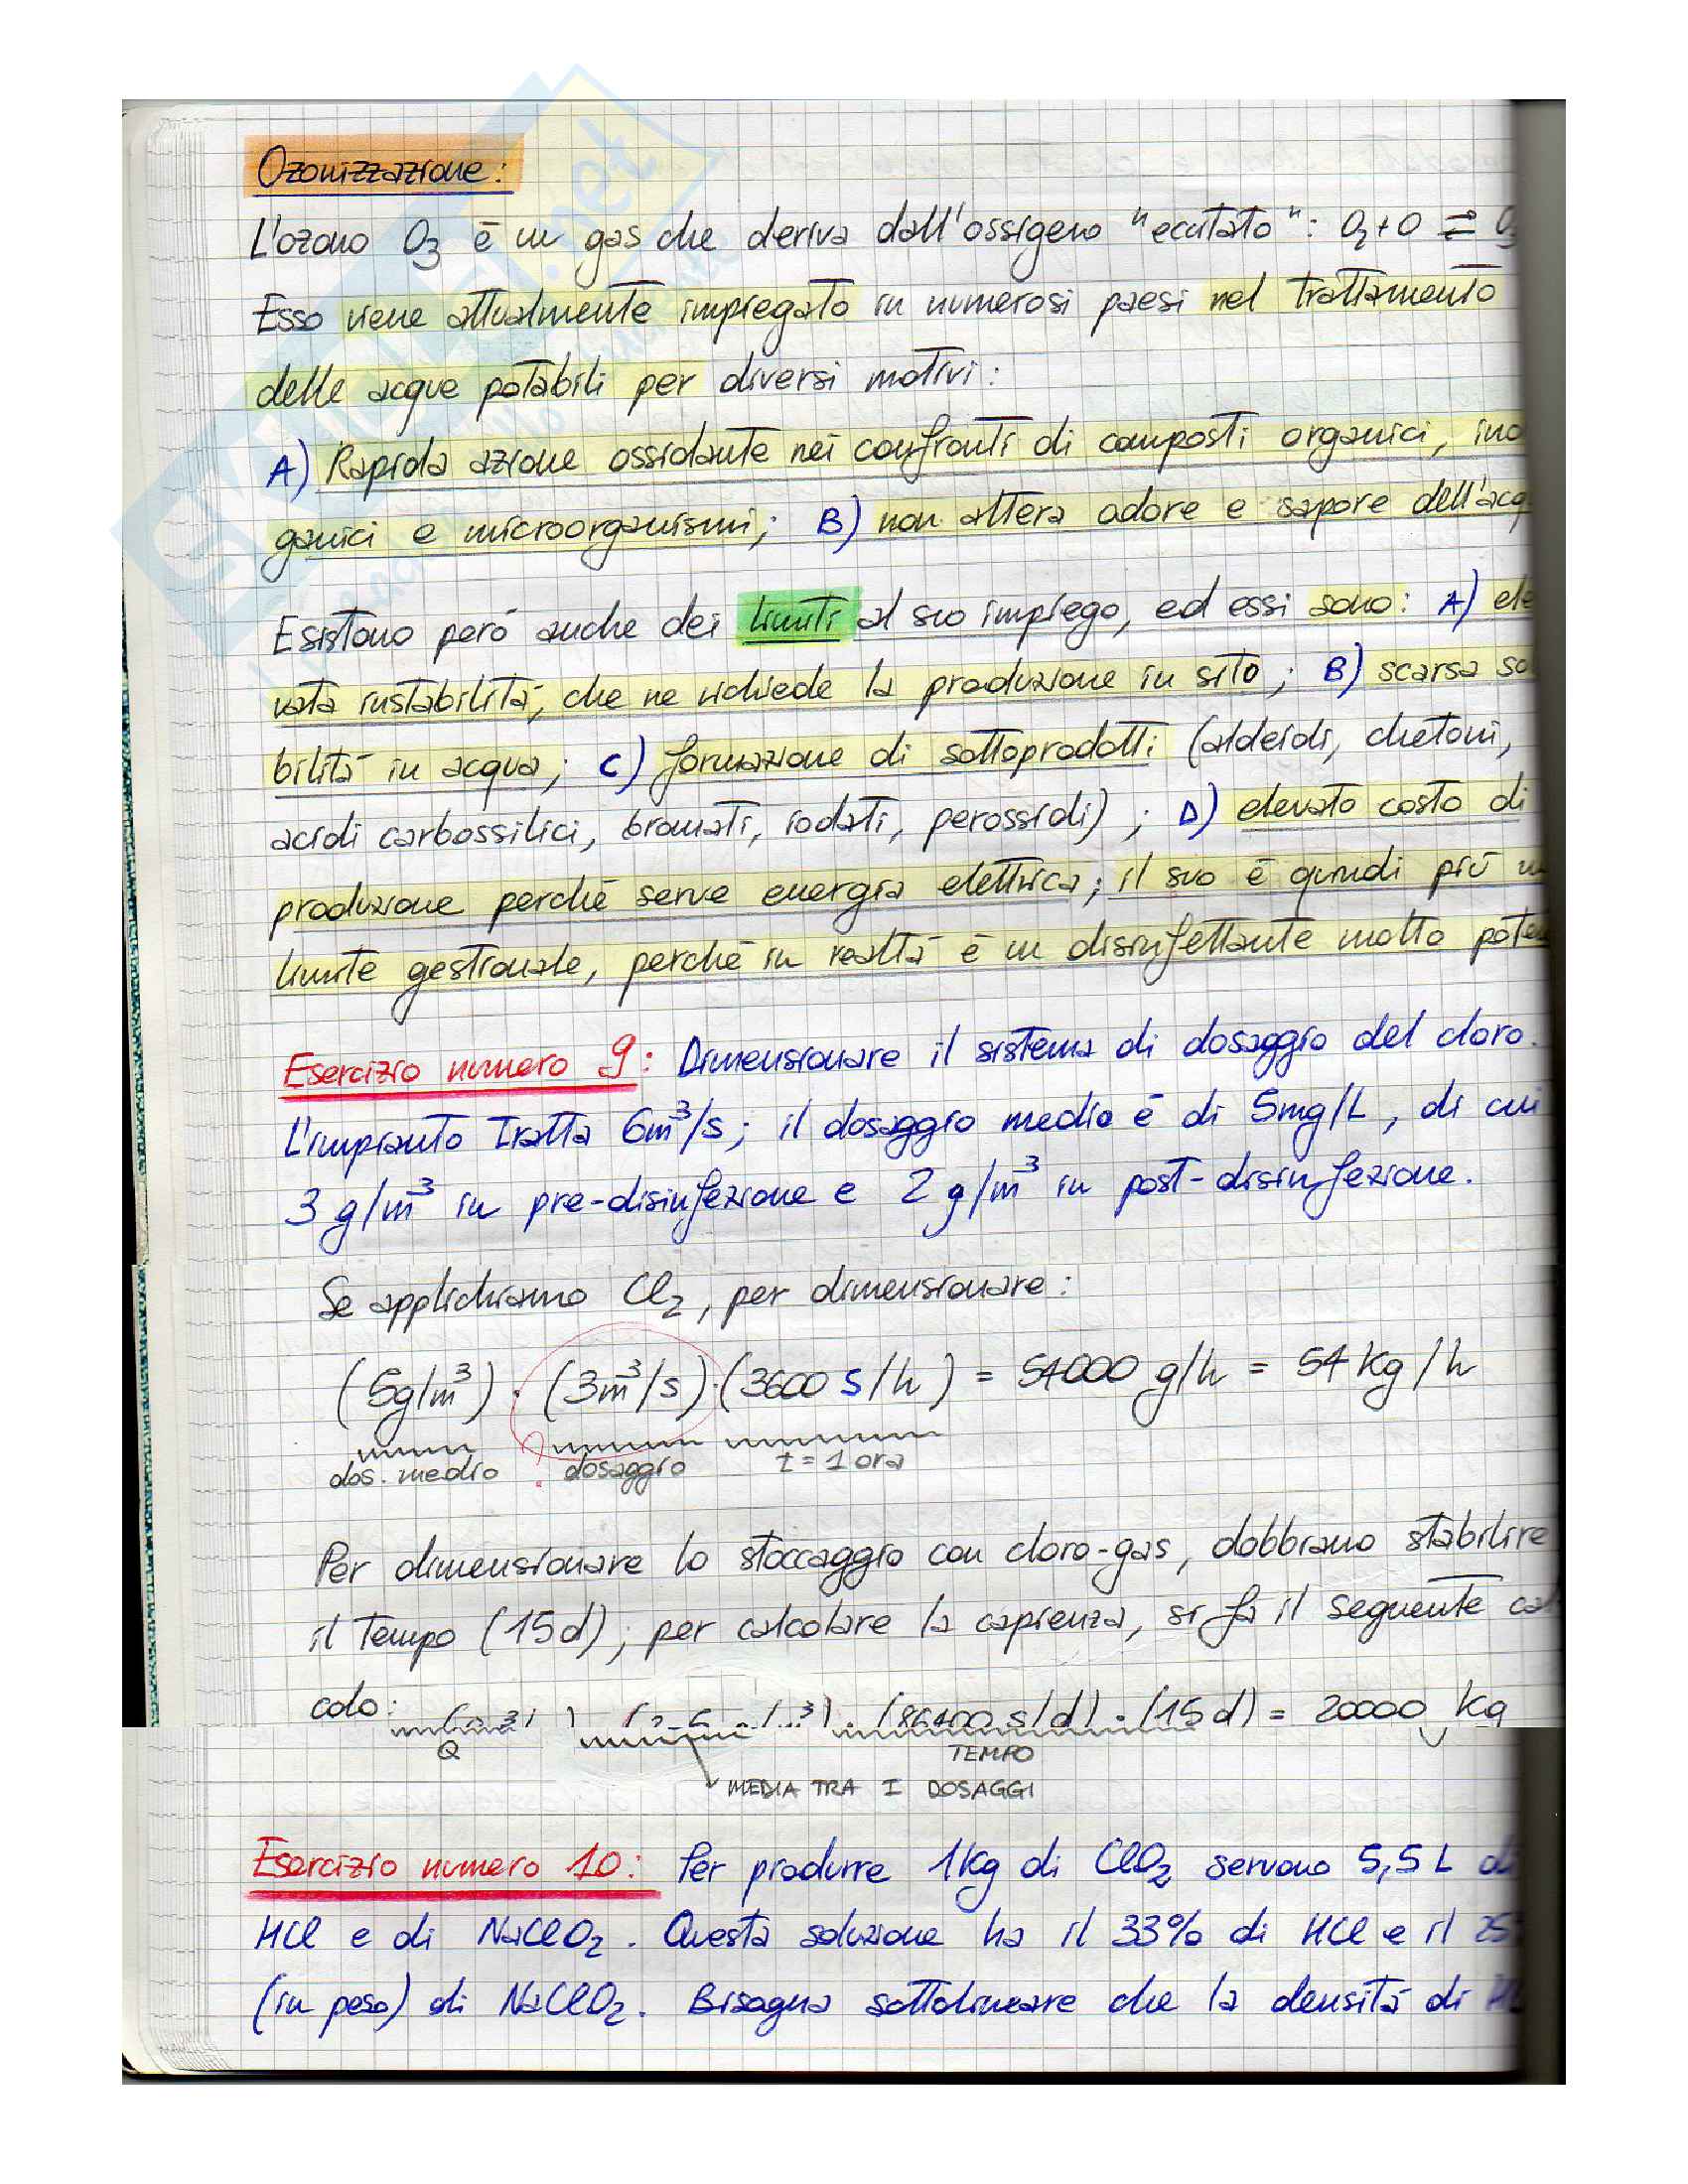 Ozonizzazione:
L'ozono O3 è un gas che deriva dall'ossigeno "eccitato": O2+O ⇌ O3
Esso viene attualmente impiegato in numerosi paesi nel trattamento
delle acque potabili per diversi motivi:
A) Rapida azione ossidante nei confronti di composti organici, ino
ganici e microorganismi; B) non altera odore e sapore dell'acq
Esistono però anche dei limiti al suo impiego, ed essi sono: A) ele
vata instabilità, che ne richiede la produzione in sito; B) scarsa so
bilità in acqua; C) formazione di sottoprodotti (aldeidi, chetoni,
acidi carbossilici, bromati, iodati, perossidi); D) elevato costo di
produzione perché serve energia elettrica; il suo è quindi più un
limite gestionale, perché in realtà è un disinfettante molto poten
Esercizio numero 9: Dimensionare il sistema di dosaggio del cloro.
L'impianto tratta 6m³/s; il dosaggio medio è di 5mg/L, di cui
3 g/m³ in pre-disinfezione e 2 g/m³ in post-disinfezione.
Se applichiamo Cl2, per dimensionare:
(5g/m³) · (3m³/s) · (3600 s/h) = 54000 g/h = 54 Kg/h
dos. medio ? dosaggio t = 1 ora
Per dimensionare lo stoccaggio con cloro-gas, dobbiamo stabilire
il tempo (15d); per calcolare la capienza, si fa il seguente cal
colo: (86400 s/d) · (15d) = 20000 Kg
Q TEMPO
MEDIA TRA I DOSAGGI
Esercizio numero 10: Per produrre 1Kg di ClO2 servono 5,5 L di
HCl e di NaClO2. Questa soluzione ha il 33% di HCl e il 25%
(in peso) di NaClO2. Bisogna sottolineare che la densità di